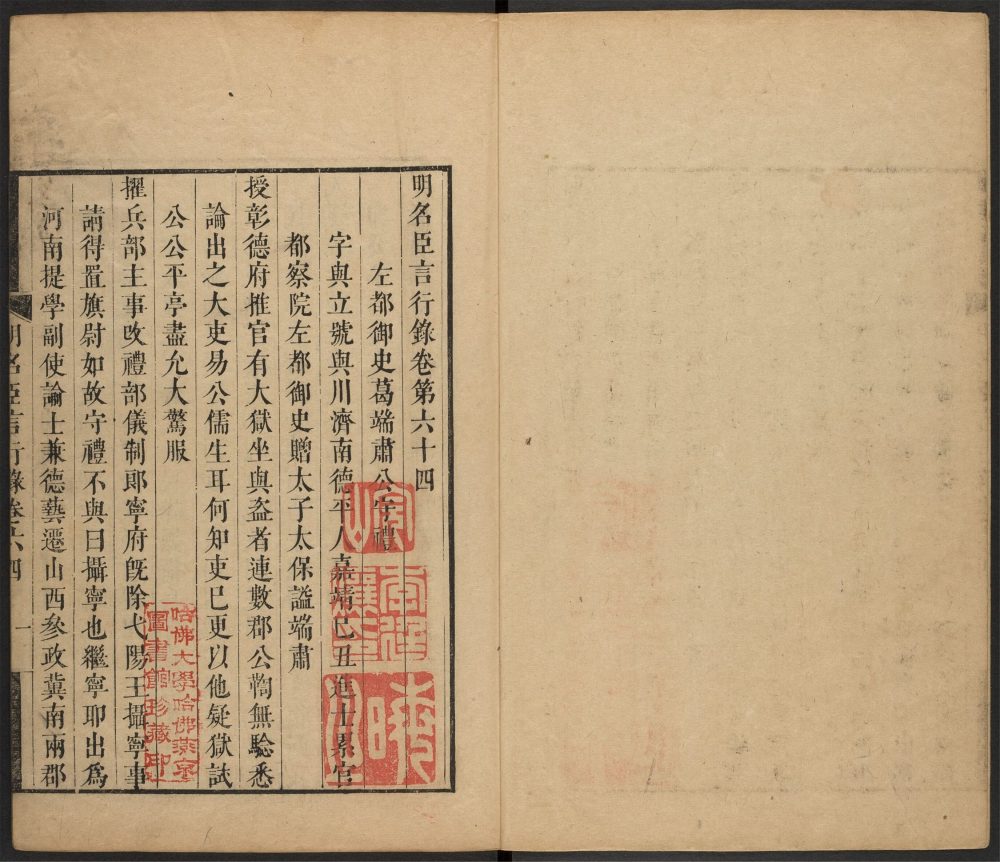 明名臣言行錄卷第六十四
左都御史葛端肅公守禮
字與立號與川濟南德平人嘉靖己丑進士累官
都察院左都御史贈太子太保謚端肅
授彰德府推官有大獄坐與盜者連數郡公鞫無驗悉
論出之大吏易公儒生耳何知吏巳更以他疑獄試
公公平亭盡允大驚服
擢兵部主事改禮部儀制郎寧府旣除弋陽王攝寧事
請得置旗尉如故守禮不與曰攝寧也繼寧耶出爲
河南提學副使論士兼德藝遷山西參政冀南兩郡
明名臣言行錄卷六四
一
哈佛大學哈佛燕京
圖書館珍藏印